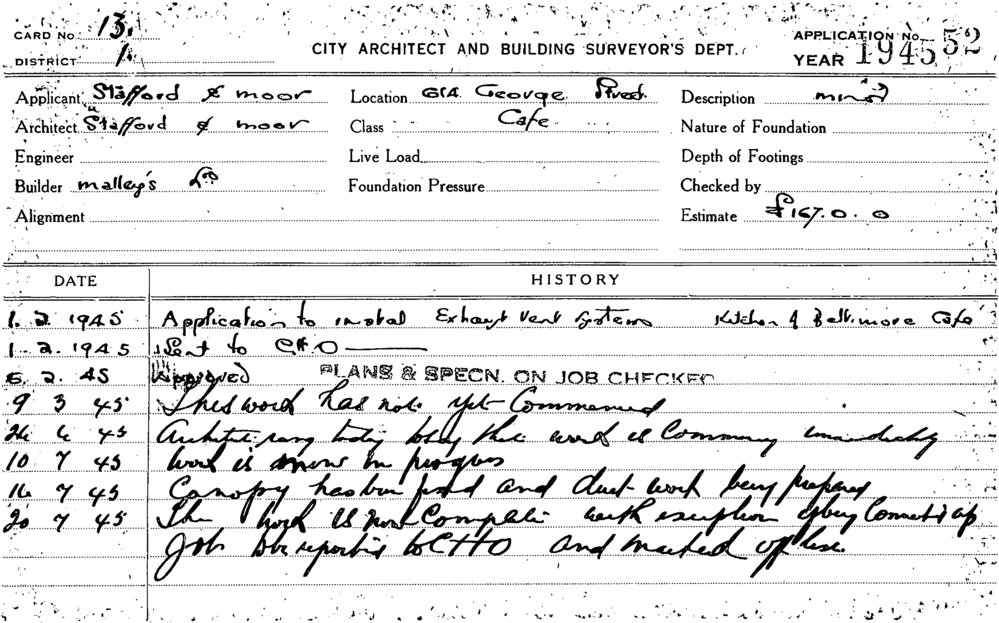 CARD No 13.
DISTRICT 1.
CITY ARCHITECT AND BUILDING SURVEYOR'S DEPT.
APPLICATION No. 52
YEAR 1945
Applicant Stafford & moor
Location 61A George Street.
Description minor
Architect Stafford & moor
Class Cafe
Nature of Foundation
Engineer
Live Load
Depth of Footings
Builder malley's Ltd
Foundation Pressure
Checked by
Alignment
Estimate £167.0.0
DATE
HISTORY
1.2.1945 Application to instal Exhaust Vent System Kitchen of Baltimore Cafe
1.2.1945 Sent to CHO
6.2.45 Approved PLANS & SPECN. ON JOB CHECKED
9 3 45 This work has not yet Commenced
26 6 45 Architect rang today to say this work is Commencing immediately
10 7 45 Work is now in progress
16 7 45 Canopy has been fixed and duct work being prepared
20 7 45 The work is now Complete with exception of being Connected up
Job to CHO and marked off here.